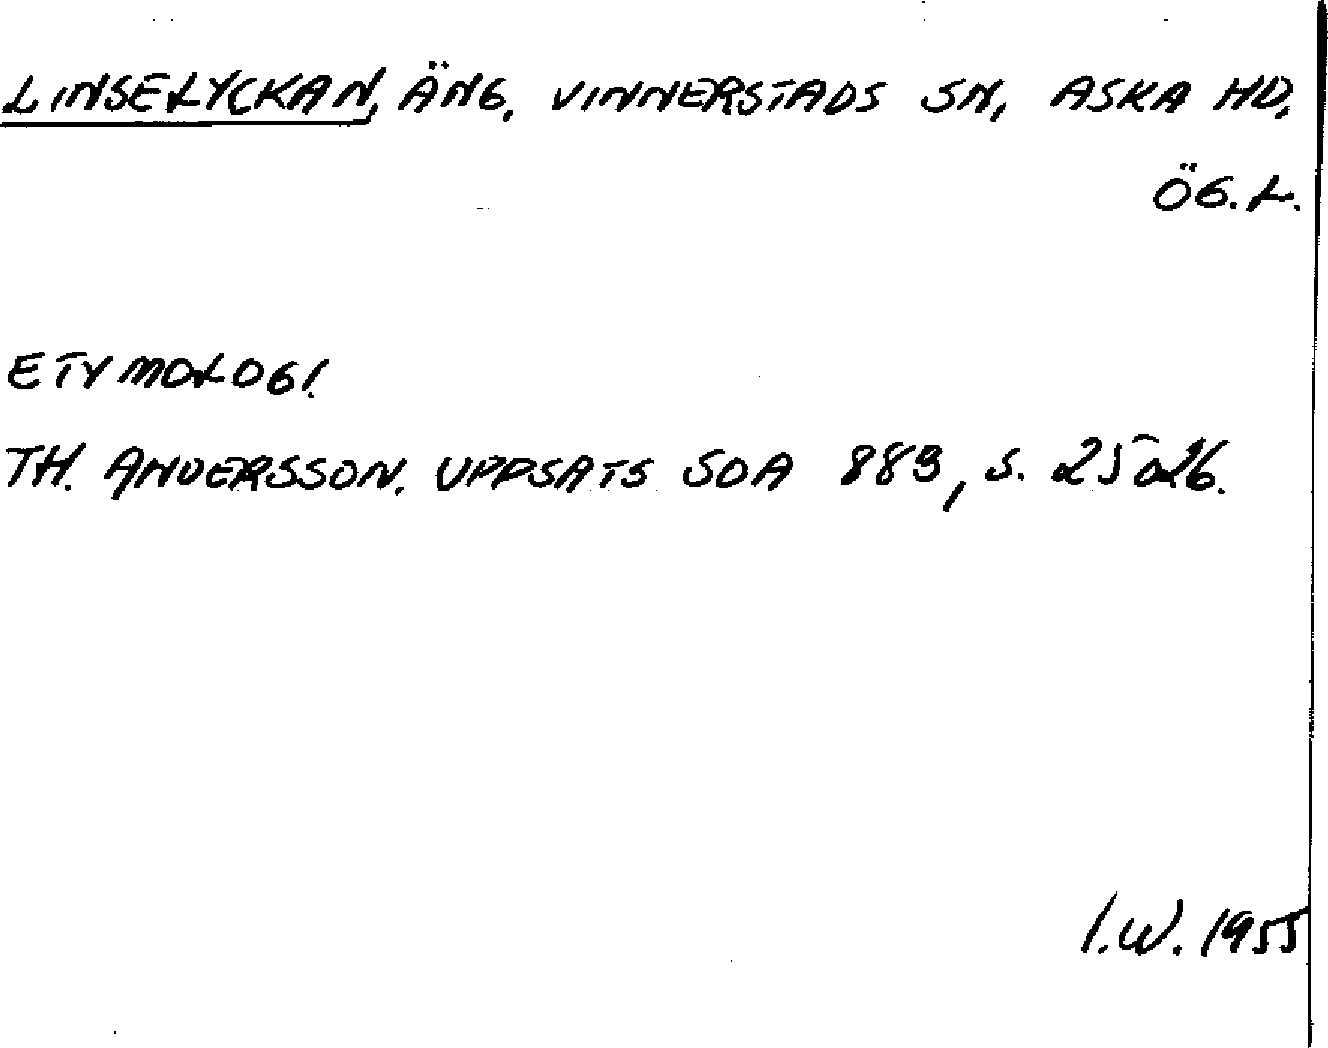 LINSELYCKAN, ÄNG, VINNERSTADS SN, ASKA HD,
ÖG.L.
ETYMOLOGI.
TH. ANDERSSON. UPPSATS SOA 883, S. 25 o 26.
I.W. 1955